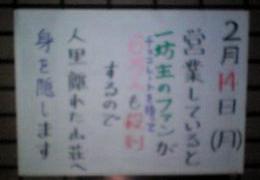 2月14日(月)
営業していると
一坊主のファンが
チョコレートを持って
も殺到
するので
人里離れた山荘へ
身を隠します